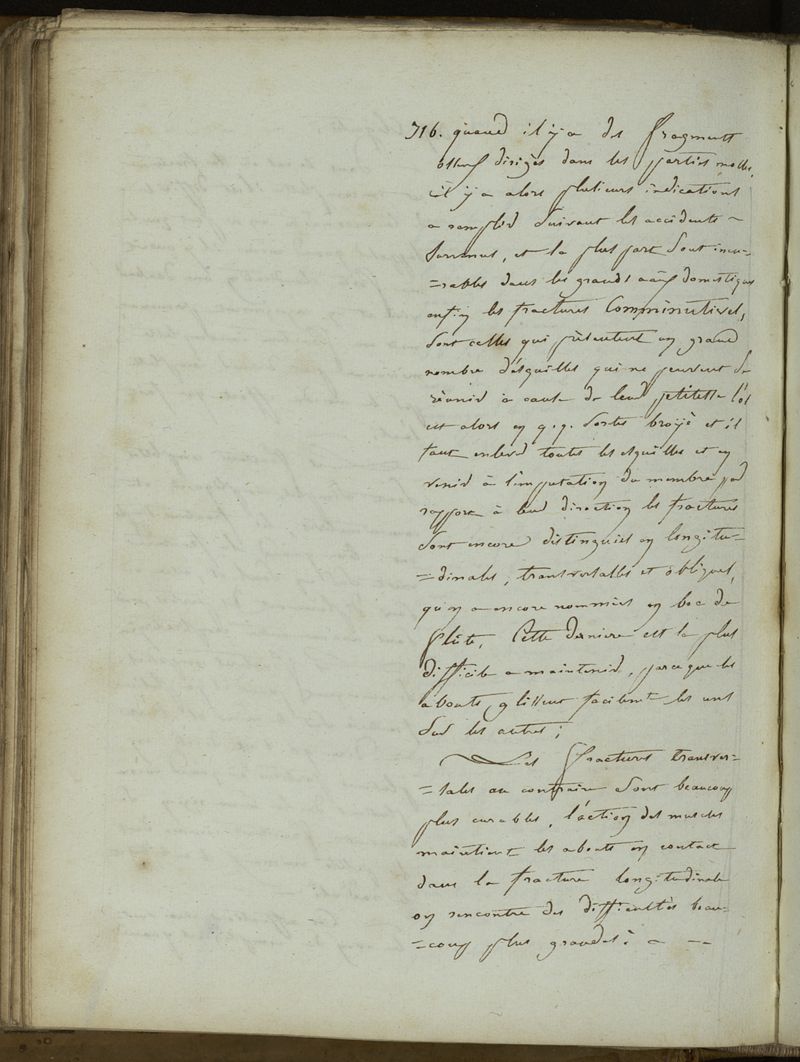 716. quand il y a des fragments
osseux dirigés dans les parties molles,
il y a alors plusieurs indications
a remplir suivant les accidents
survenus, et la plus part sont incu=
=rables dans les grands aux domestiques
enfin les fractures Comminutives,
sont celles qui présentent un grand
nombre d'ésquilles qui ne peuvent se
réunir à cause de leur petitesse l'os
est alors en q.q. sortes broyé et il
faut enlever toutes les esquilles et en
venir à l'imputation du membre par
rapport à leur direction les fractures
sont encore distinguées en longitu=
=dinales, transversalles et obliques,
qu'on a encore nommées en bec de
flûte, Cette derniere est la plus
difficile a maintenir, parceque les
abouts glissent facilemt les uns
sur les autres;
Les fractures transver=
=sales au contraire sont beaucoup
plus curables, l'action des muscles
maintient les abouts en contact
dans la fracture longitudinale
on rencontre des difficultés beau=
=coup plus grandes;